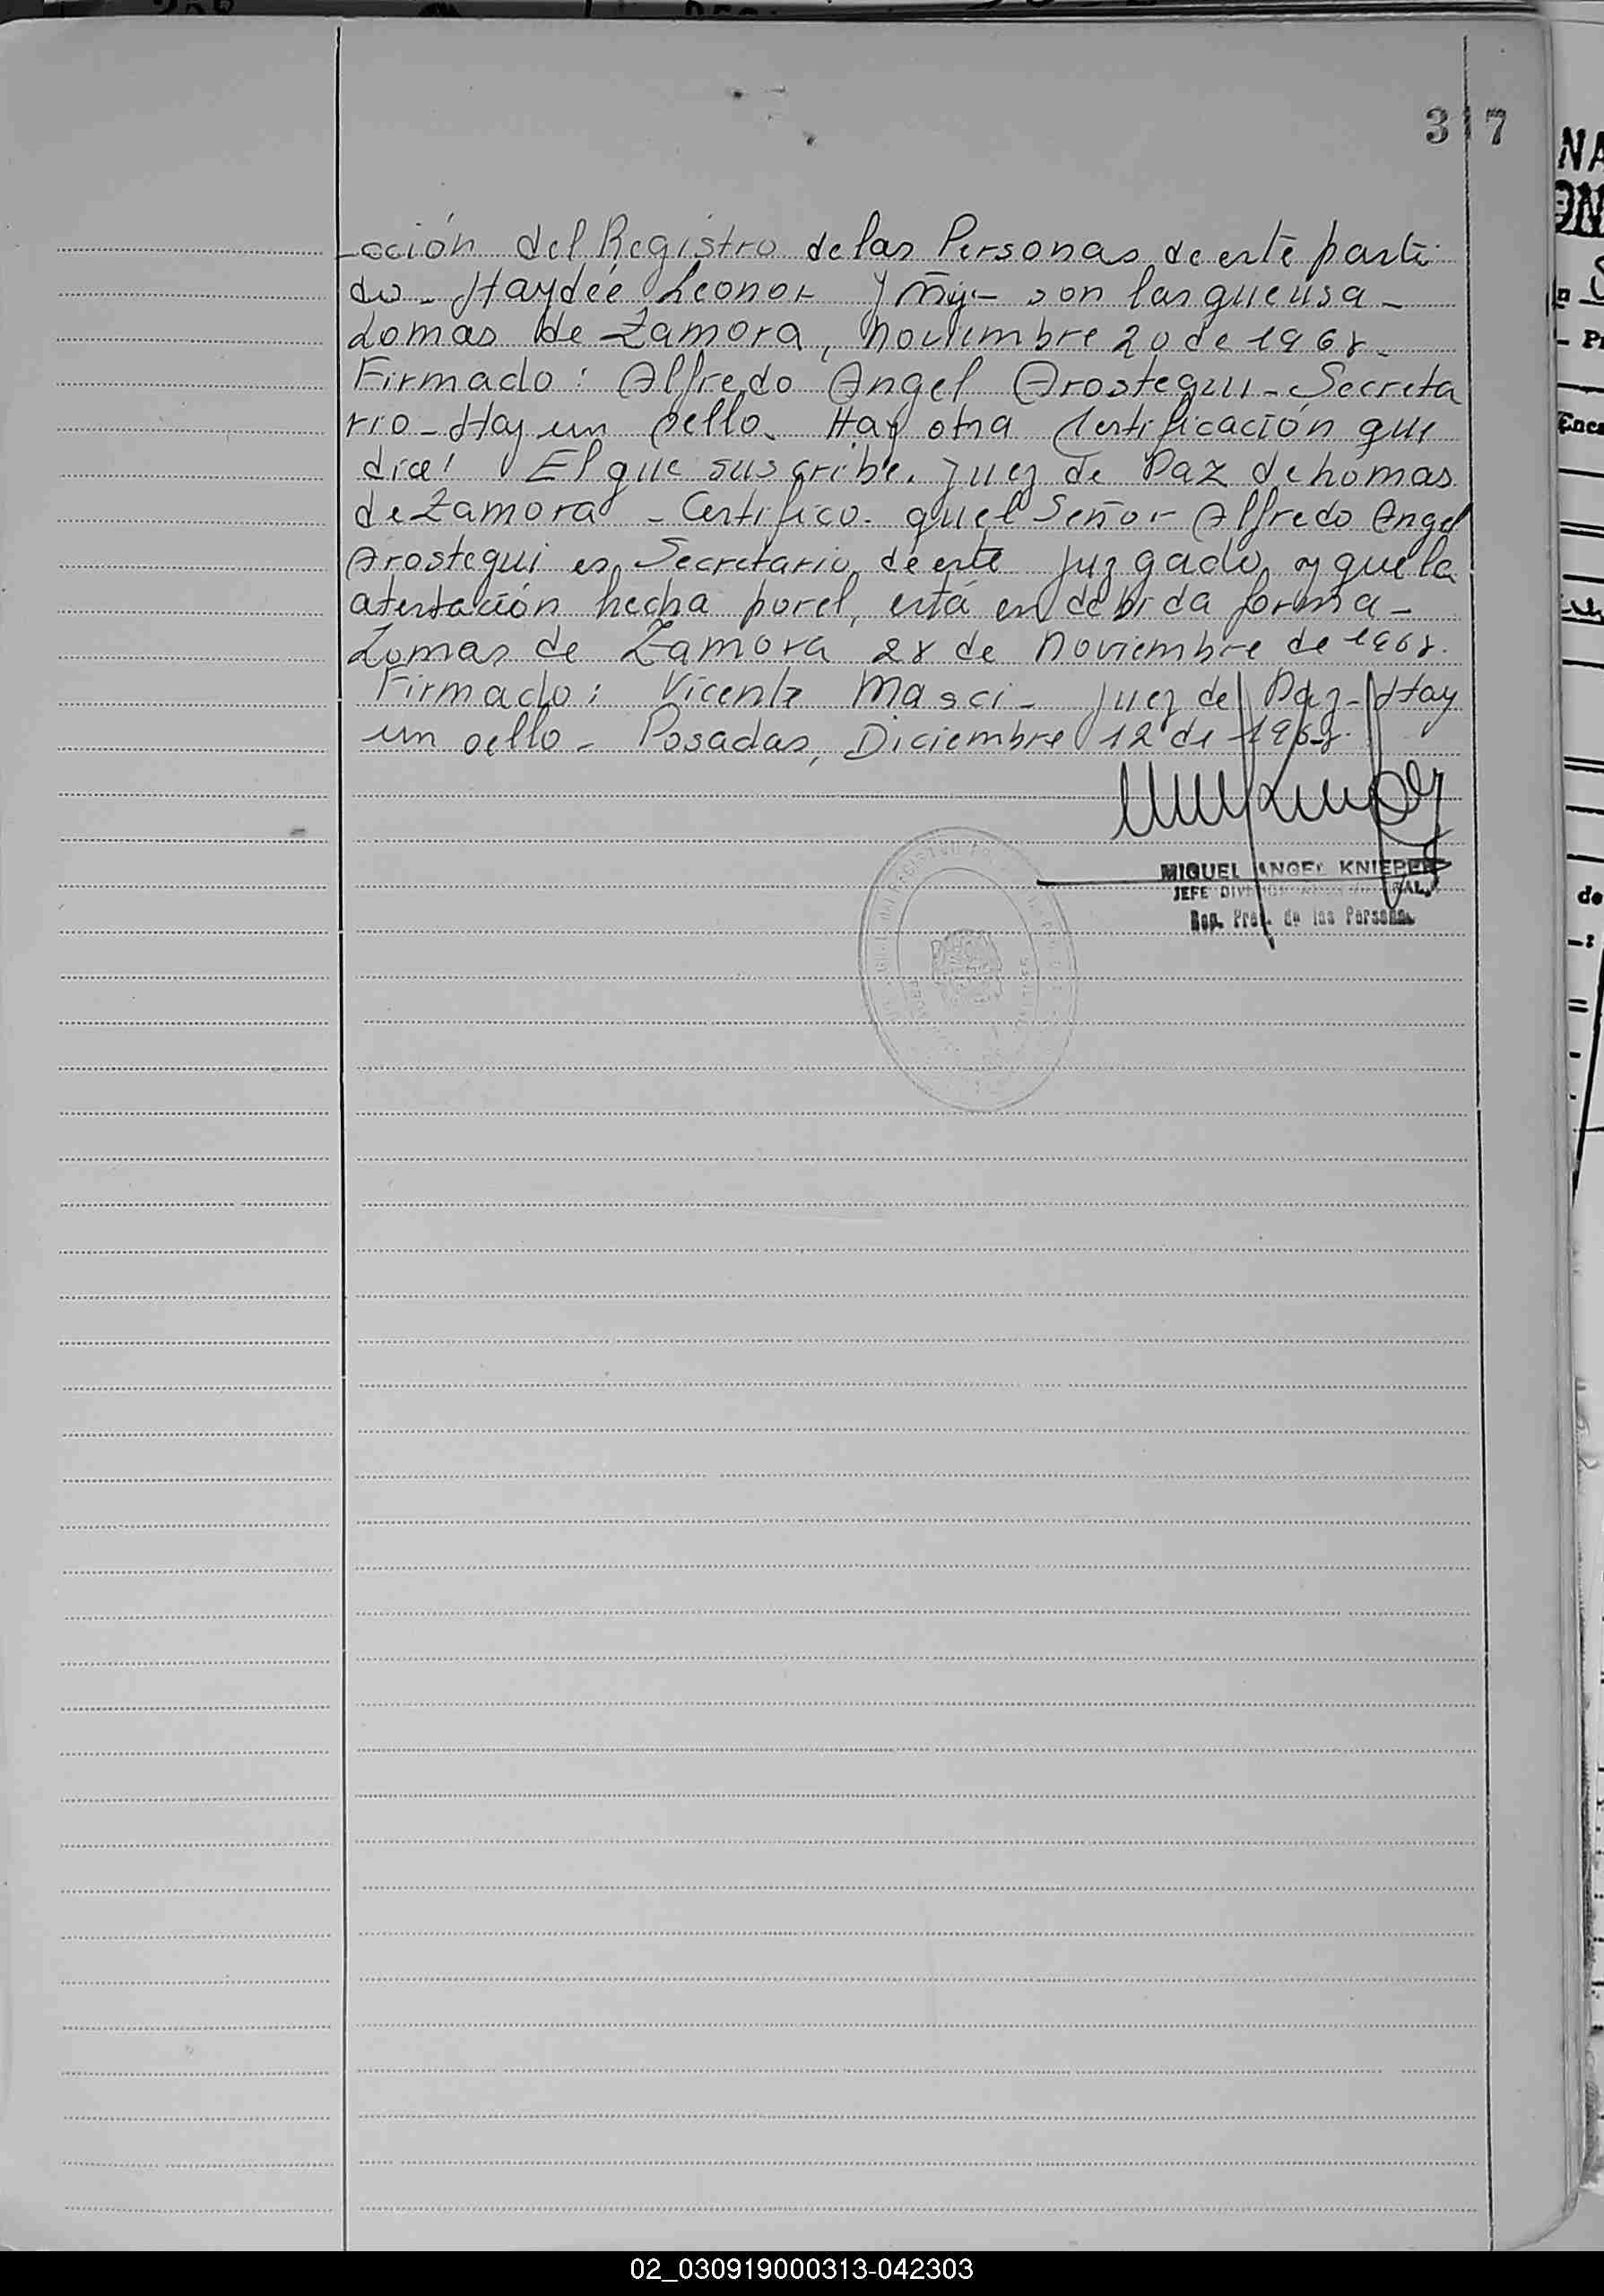 317
-cción del Registro de las Personas de este parti
do - Haydée Leonor Yñiy - son las que usa -
Lomas de Zamora, Noviembre 20 de 1968.
Firmado: Alfredo Angel Arostegui - Secreta
rio - Hay un sello. Hay otra Certificación que
dice: El que suscribe. Juez de Paz de Lomas
de Zamora - Certifico. que el Señor Alfredo Angel
Arostegui es Secretario de este Juzgado y que la
atestación hecha por el, está en debida forma -
Lomas de Zamora 28 de Noviembre de 1968.
Firmado: Vicente Masci - Juez de Paz - Hay
un sello - Posadas, Diciembre 12 de 1968.
MIGUEL ANGEL KNIEPER
JEFE
Reg. Prov. de las Personas
02_030919000313-042303